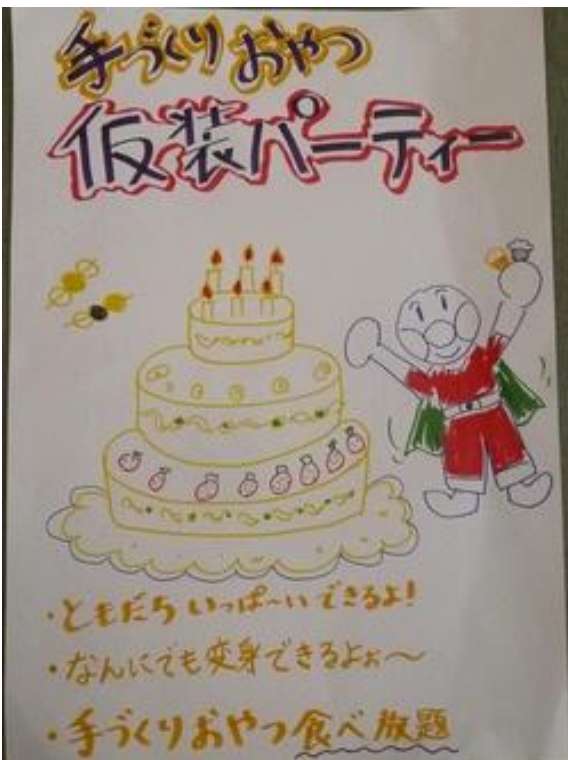 手づくりおやつ
仮装パーティー
・ともだち いっぱ〜い できるよ!
・なんにでも変身できるよぉ〜
・手づくりおやつ食べ放題